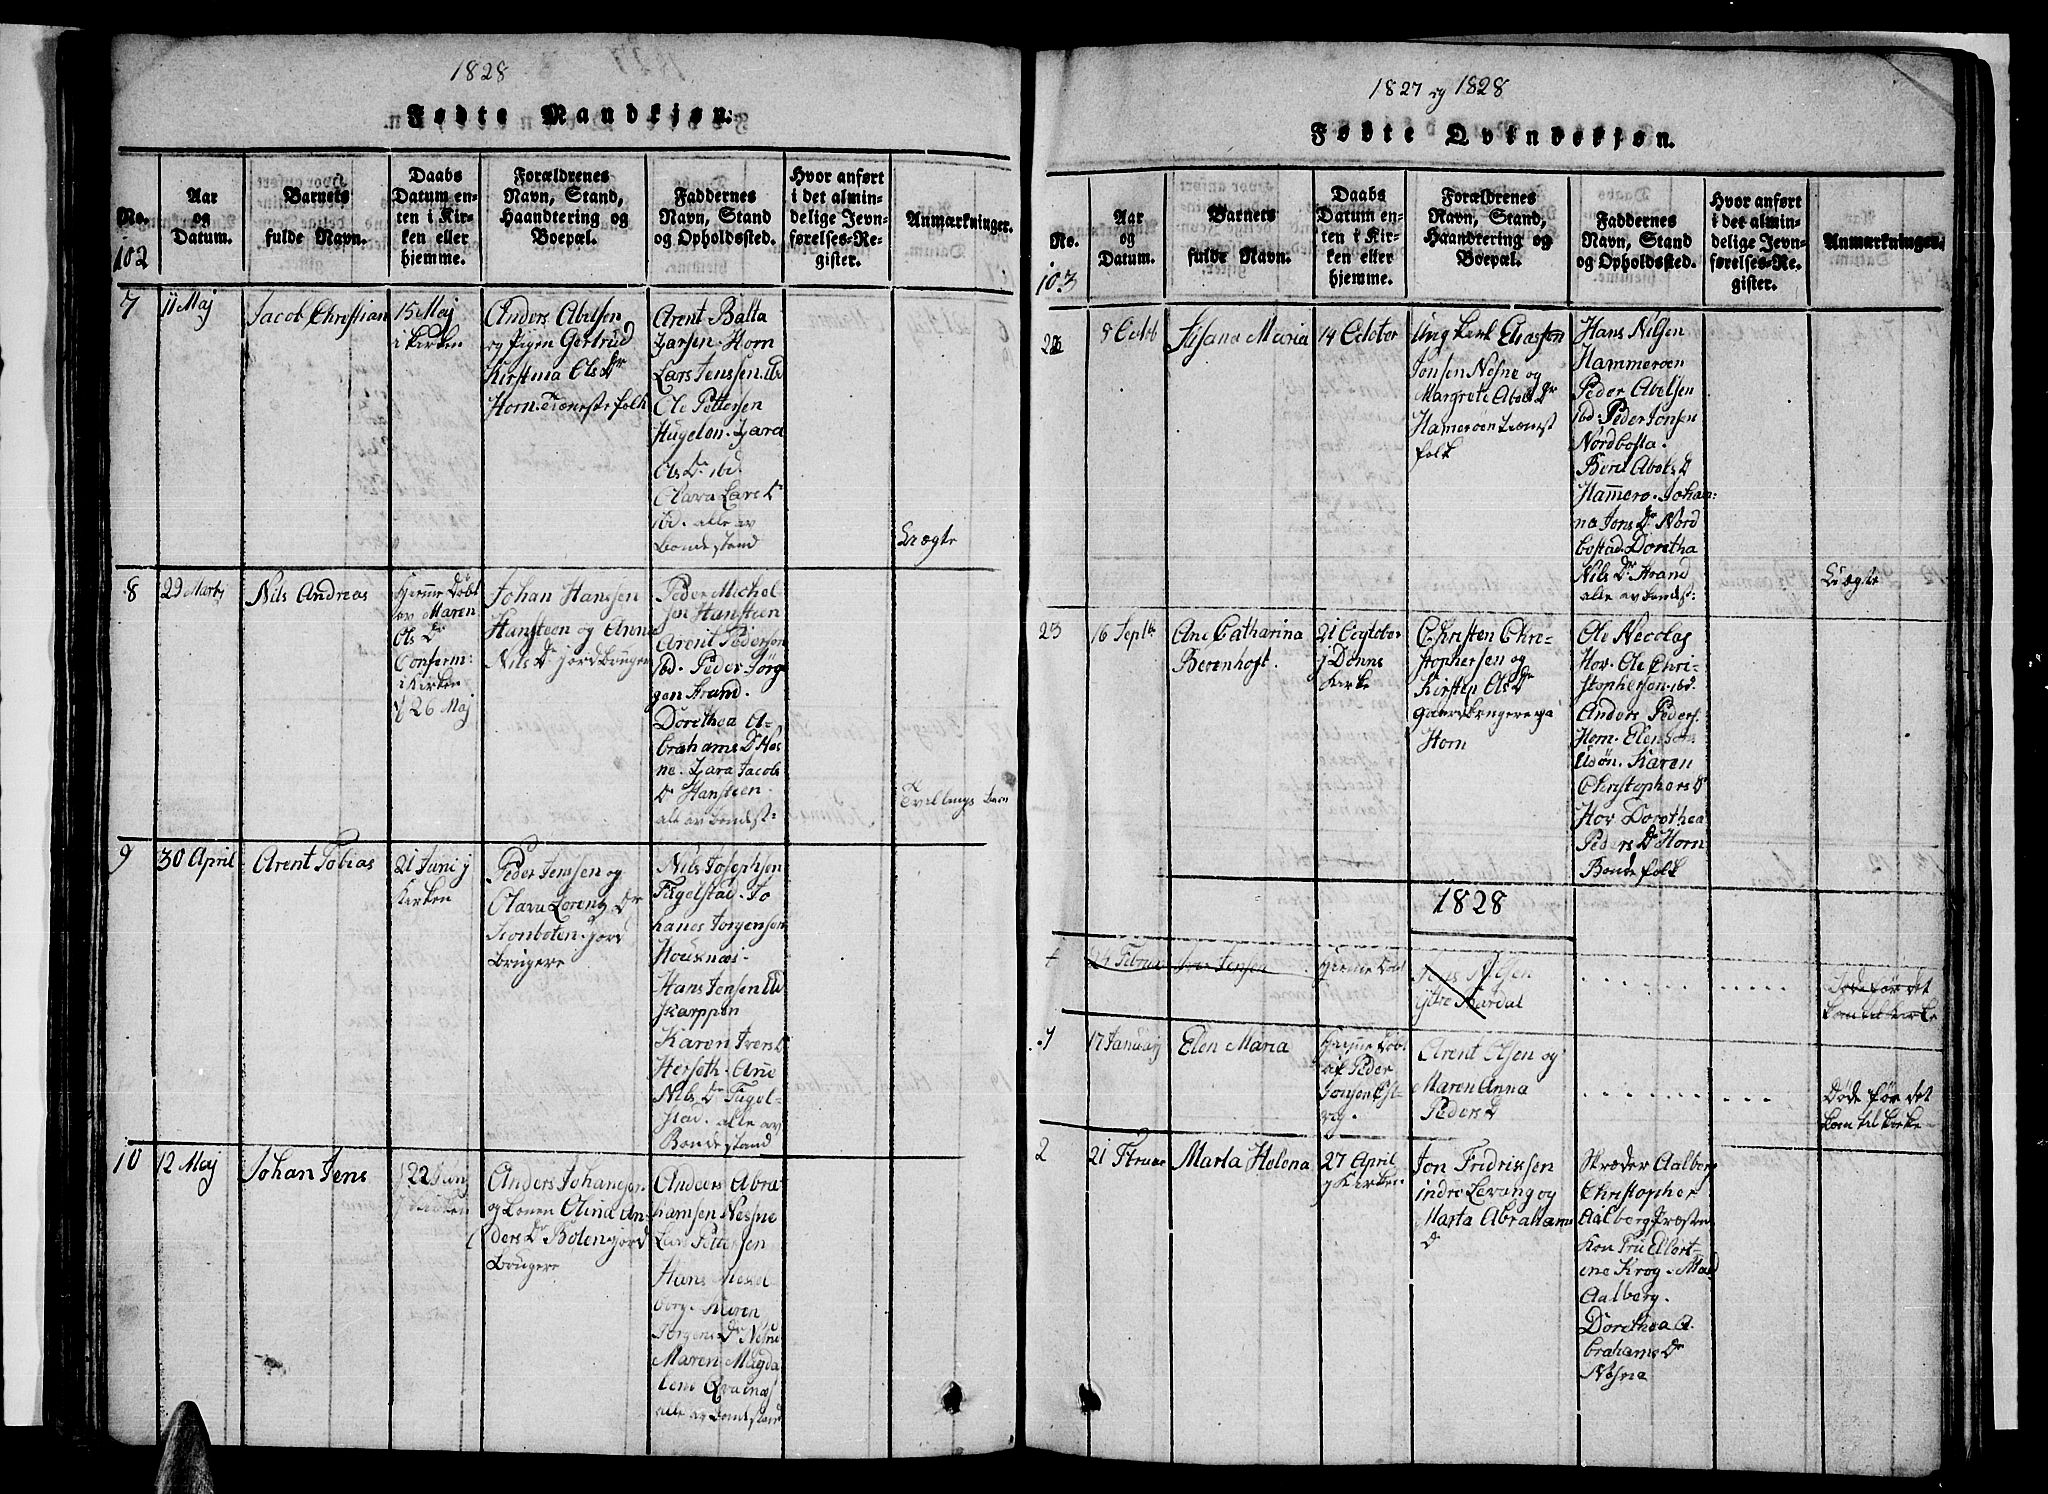 1828
Fødte Mandkjøn.
No.
102
Aar
og
Datum.
Barnets
fulde Navn.
Daabs
Datum en-
ten i Kir-
ken eller
hjemme.
Forældrenes
Navn, Stand,
Haandtering og
Boepæl.
Faddernes
Navn, Stand
og Opholdssted.
Hvor anført
i det almin-
delige Jevn-
førelses-Re-
gister.
Anmærkninger.
7
11 Maj
Jacob Christian
15 Maj
i Kirken
Anders Abelsen
og Pigen Gertrud
Kirstina Ols Dr
Horn. Tieneste folk
Arent Balta
Larsen. Horn
Lars Jenssen. ibd
Ole Pettersen
Hugelon. Zara
Ols Dr ibd.
Clara Lars Dr
ibd. alle av
bondestand
Uægte
8
29 Martj
Nils Andreas
Hjemme Døbt
av Maren
Ols Dr
Conferm:
i Kirken
d 26 Maj
Johan Hanssen
Hansteen og Anne
Nils Dr jordbruger
Peder Michel
sen Hansteen
Arent Pederson
ibd. Peder Jørg
gen Strand.
Dorethea A-
brahams Dr Nes
ne. Zara Jacobs
Dr Hansteen.
alle av bondest:
Tvillings barn
9
30 April
Arent Tobias
21 Junij
Kirken
Peder Jenssen og
Clara Lorentz Dr
jord
brugere
Nils Josephsen
Fugelstad. Jo
hanes Jorgensen
Houknæs.
Hans Jensen
Skarppen
Karen Ivers D
Herseth. Ane
Nils Dr Fugel-
stad. alle av
Bondestand
10
12 Maj
Johan Jens
22 Junij
j Kirken
Anders Johansen
og konen Olina An-
ders Dr Boten jord
brugere
Anders Abra
hamsen Nesne
Lars Pettersen
Hans
borg. Maren
Jorgens Dr Nesne
Maren Magda
lene Qvalnæs
alle av bondestand
1827 og 1828
Fødte Qvindekjøn.
No.
103
Aar
og
Datum.
Barnets
fulde Navn.
Daabs
Datum en-
ten i Kir-
ken eller
hjemme.
Forældrenes
Navn, Stand,
Haandtering og
Boepæl.
Faddernes
Navn, Stand
og Opholdssted.
Hvor anført
i det almin-
delige Jevn-
førelses-Re-
gister.
Anmærkninger.
22
8 Octob
Susana Maria
14 October
Ung karl Eliasson
Jonsen Nesne og
Margrete Abels Dr
Hamerøen tienest
folk
Hans Nilsen
Hammerøen
Peder Abelsen
ibd: Peder Jonsen
Nordbosta.
Berit Abels D
Hammerø. Johan-
na Jons Dr Nord
bostad. Doretha
Nils Dr Strand
alle av bondest:
Uægte
23
16 Septb
Ane Catharina
Berenhoft.
21 October
j Dønnes
Kirke
Christen Chri-
stophersen og
Kirsten Ols Dr
gaardbrugere paa
Horn
Ole Necolas
Hov. Ole Chri-
stophersen. ibd.
Anders Peders.
Horn. Elen
Karen
Christophers D
Hov Dorothea
Peders Dr Horn
Bondefolk
1828
Februa
Jensen
Hjemme Døbt
Jens Nilsen
ytre
Døde før det
kom til kirke
1
17 January
Elen Maria
Hjemme Døbt
af Peder
Jonsen
Arent Olsen og
Maren Anna
Peders D
Døde før det
kom til kirke
2
21 Februar
Marta Helena
27 April
j Kirken
Jon Fridrissen
indre Levang og
Marta Abrahams
Dr
Skræder Aalberg
Christopher
Aalberg. Præste
Kon Fru Ellert-
ine Krog. Mad
Aalberg.
Dorethea A-
brahams Dr
Nesne